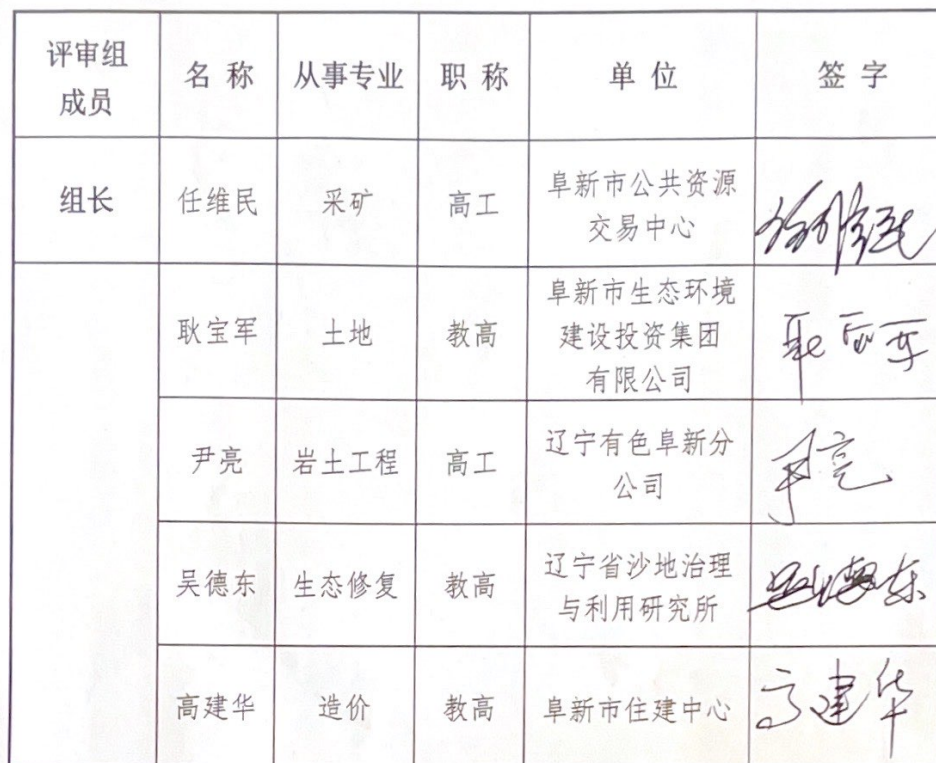 评审组
成员
名 称
从事专业
职 称
单 位
签 字
组长
任维民
采矿
高工
阜新市公共资源
交易中心
耿宝军
土地
教高
阜新市生态环境
建设投资集团
有限公司
尹亮
岩土工程
高工
辽宁有色阜新分
公司
尹亮
吴德东
生态修复
教高
辽宁省沙地治理
与利用研究所
高建华
造价
教高
阜新市住建中心
高建华